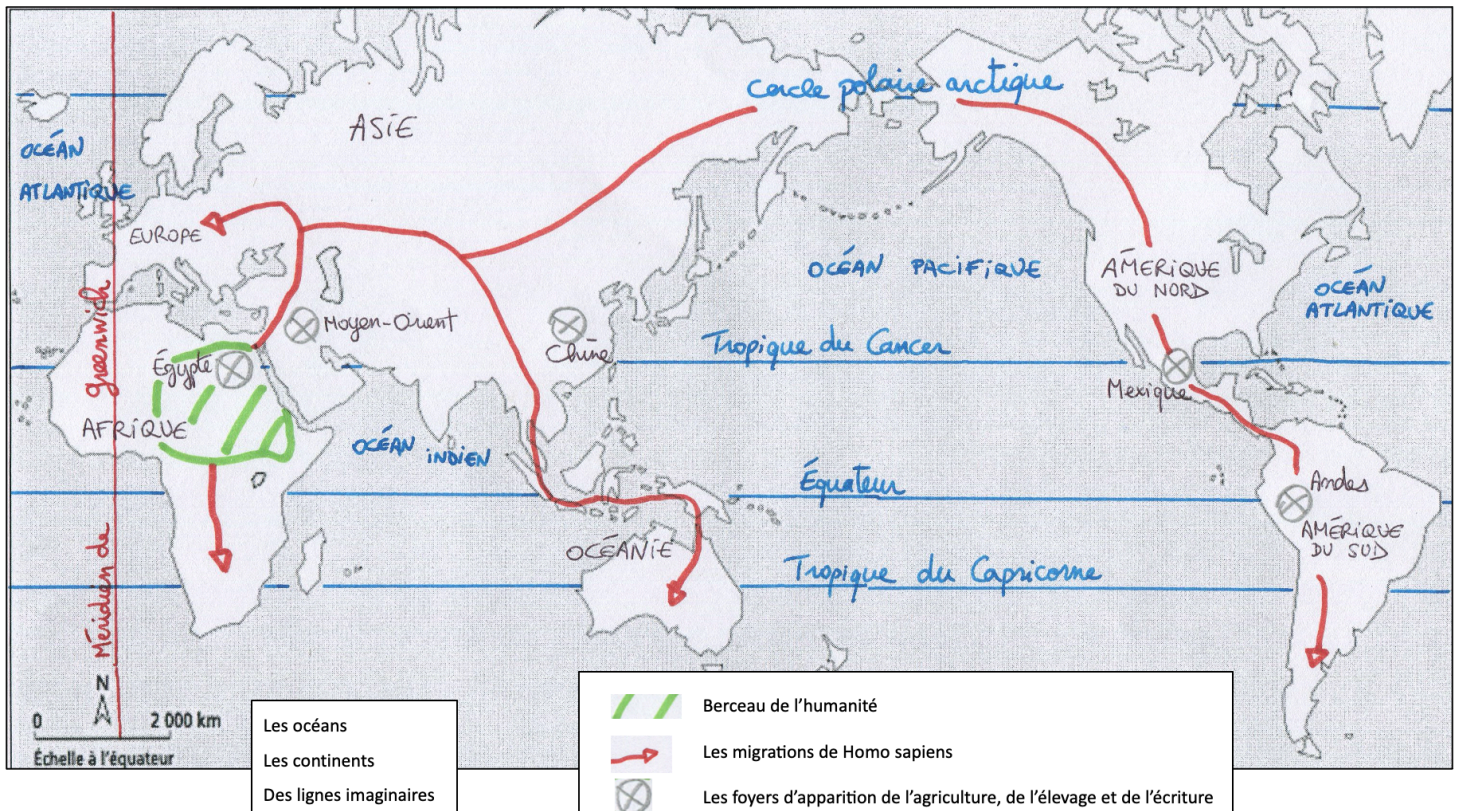 Cercle polaire arctique
ASIE
OCÉAN
ATLANTIQUE
EUROPE
OCÉAN PACIFIQUE
AMÉRIQUE
DU NORD
OCÉAN
ATLANTIQUE
Moyen-Orient
Chine
Tropique du Cancer
Égypte
Mexique
AFRIQUE
OCÉAN INDIEN
Équateur
Andes
AMÉRIQUE
DU SUD
OCÉANIE
Tropique du Capricorne
Méridien de greenwich
N
0 2 000 km
Échelle à l'équateur
Les océans
Les continents
Des lignes imaginaires
Berceau de l'humanité
Les migrations de Homo sapiens
Les foyers d'apparition de l'agriculture, de l'élevage et de l'écriture